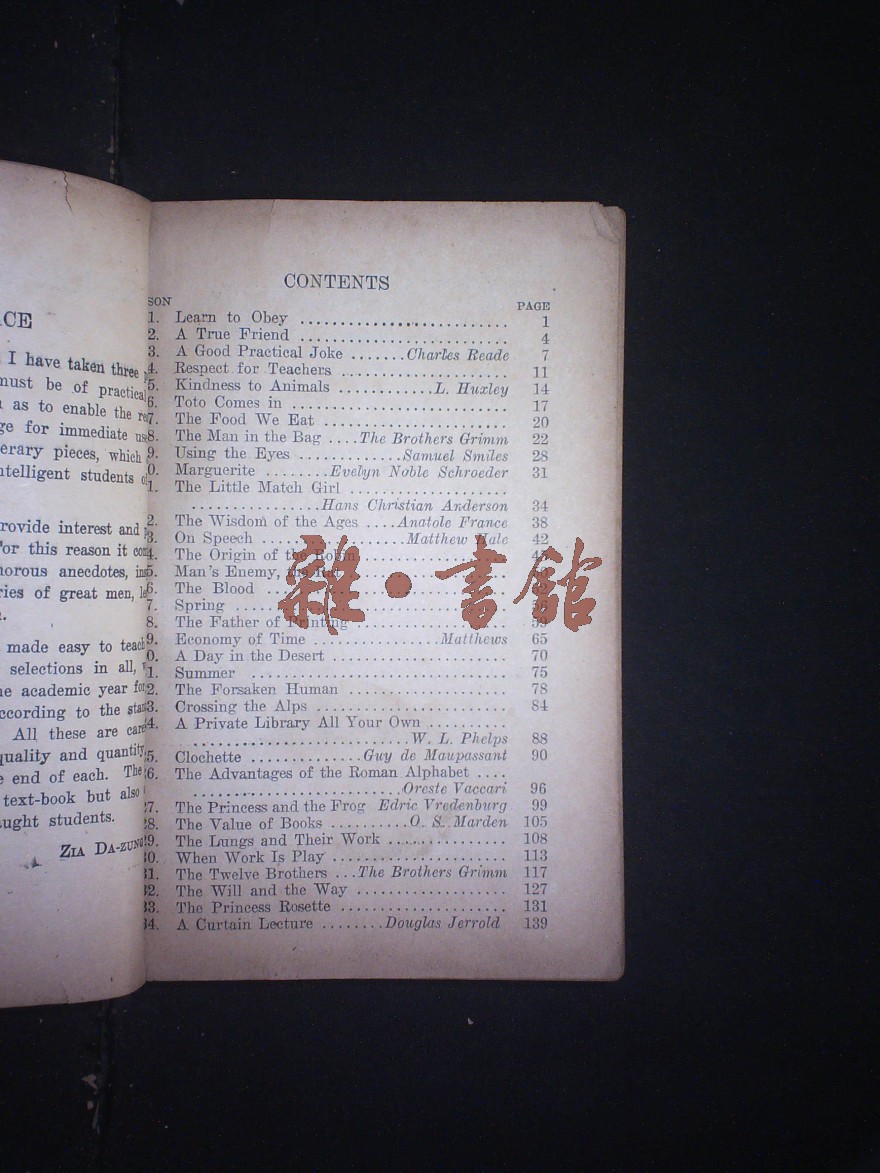 ACE
I have taken three
must be of practical
as to enable the
ge for immediate
erary pieces, which
ntelligent students
rovide interest and
For this reason it
morous anecdotes,
ries of great men,
made easy to teach
selections in all,
ne academic year
ccording to the
All these are
quality and quantity
e end of each. The
text-book but also
aught students.
ZIA DA-ZUNG
CONTENTS
SON PAGE
1. Learn to Obey 1
2. A True Friend 4
3. A Good Practical Joke Charles Reade 7
4. Respect for Teachers 11
5. Kindness to Animals L. Huxley 14
6. Toto Comes in 17
7. The Food We Eat 20
8. The Man in the Bag The Brothers Grimm 22
9. Using the Eyes Samuel Smiles 28
0. Marguerite Evelyn Noble Schroeder 31
1. The Little Match Girl
Hans Christian Anderson 34
2. The Wisdom of the Ages Anatole France 38
3. On Speech Matthew Hale 42
4. The Origin of the Robin
5. Man's Enemy, the
6. The Blood
7. Spring
8. The Father of Printing 59
9. Economy of Time Matthews 65
0. A Day in the Desert 70
1. Summer 75
2. The Forsaken Human 78
3. Crossing the Alps 84
4. A Private Library All Your Own
W. L. Phelps 88
5. Clochette Guy de Maupassant 90
6. The Advantages of the Roman Alphabet
Oreste Vaccari 96
27. The Princess and the Frog Edric Vredenburg 99
28. The Value of Books O. S. Marden 105
29. The Lungs and Their Work 108
30. When Work Is Play 113
31. The Twelve Brothers The Brothers Grimm 117
32. The Will and the Way 127
33. The Princess Rosette 131
34. A Curtain Lecture Douglas Jerrold 139
雜·書館